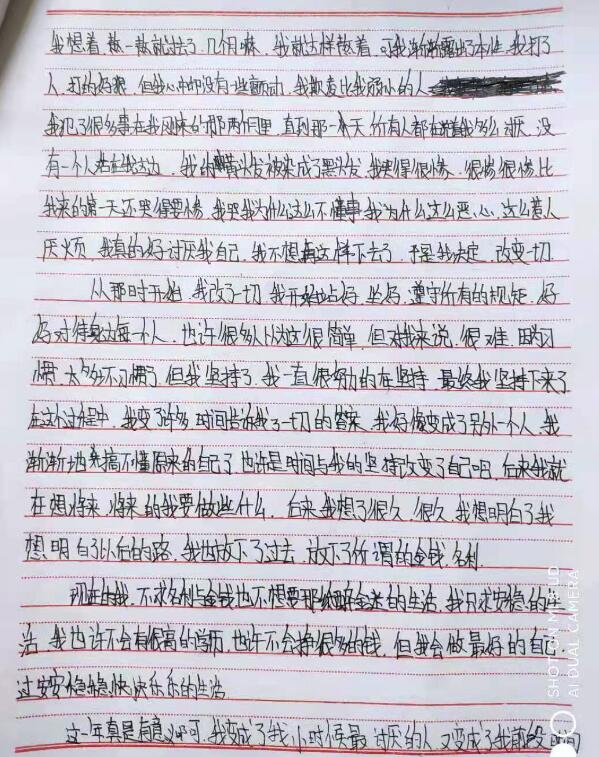 我想着,熬一熬就过去了,几个月嘛,我就这样熬着,可我渐渐露出了本性,我打了
人,打的好狠,但我心中却没有一些颤动,我欺负比我弱小的人
我犯了很多事在我刚来的那两个月里,直到那一天,所有人都在说着我多么讨厌,没
有一个人站在我这边,我的黄头发被染成了黑头发,我哭得很惨,很惨很惨,比
我来的第一天还哭得要惨,我哭我为什么这么不懂事,我为什么这么恶心,这么惹人
厌烦,我真的好讨厌我自己,我不想再这样下去了,于是我决定,改变一切
从那时开始,我改了一切,我开始站好,坐好,遵守所有的规矩,好
好对待身边每一个人,也许很多人认为这很简单,但对我来说,很难,因为习
惯,太多坏习惯了,但我坚持了,我一直很努力的在坚持,最终我坚持下来了
在这个过程中,我变了许多,时间告诉我了一切的答案,我好像变成了另外一个人,我
渐渐地搞不懂原来的自己了,也许是时间与我的坚持改变了自己吧,后来我就
在想将来,将来的我要做些什么,后来我想了很久,很久,我想明白了,我
想明白了以后的路,我也放下了过去,放下了所谓的金钱,名利
现在的我,不求名利与金钱也不想要那纸醉金迷的生活,我只求安稳的生
活,我也许不会有很高的学历,也许不会挣很多的钱,但我会做最好的自己,
过安安稳稳,快快乐乐的生活
这一年真是有意义啊,我变成了我小时候最讨厌的人,又变成了我前段时间
SHOT ON MI 8 UD
AI DUAL CAMERA